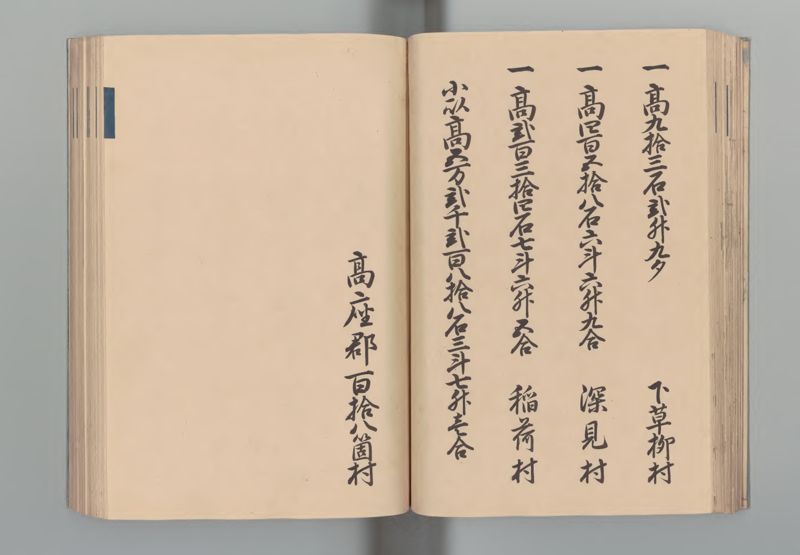 一高九拾三石弐升九夕 下草柳村
一高四百五拾八石六斗六升九合 深見村
一高弐百三拾四石七斗六升五合 稲荷村
小以高五万弐千弐百八拾八石三斗七升壱合
高座郡百拾八箇村